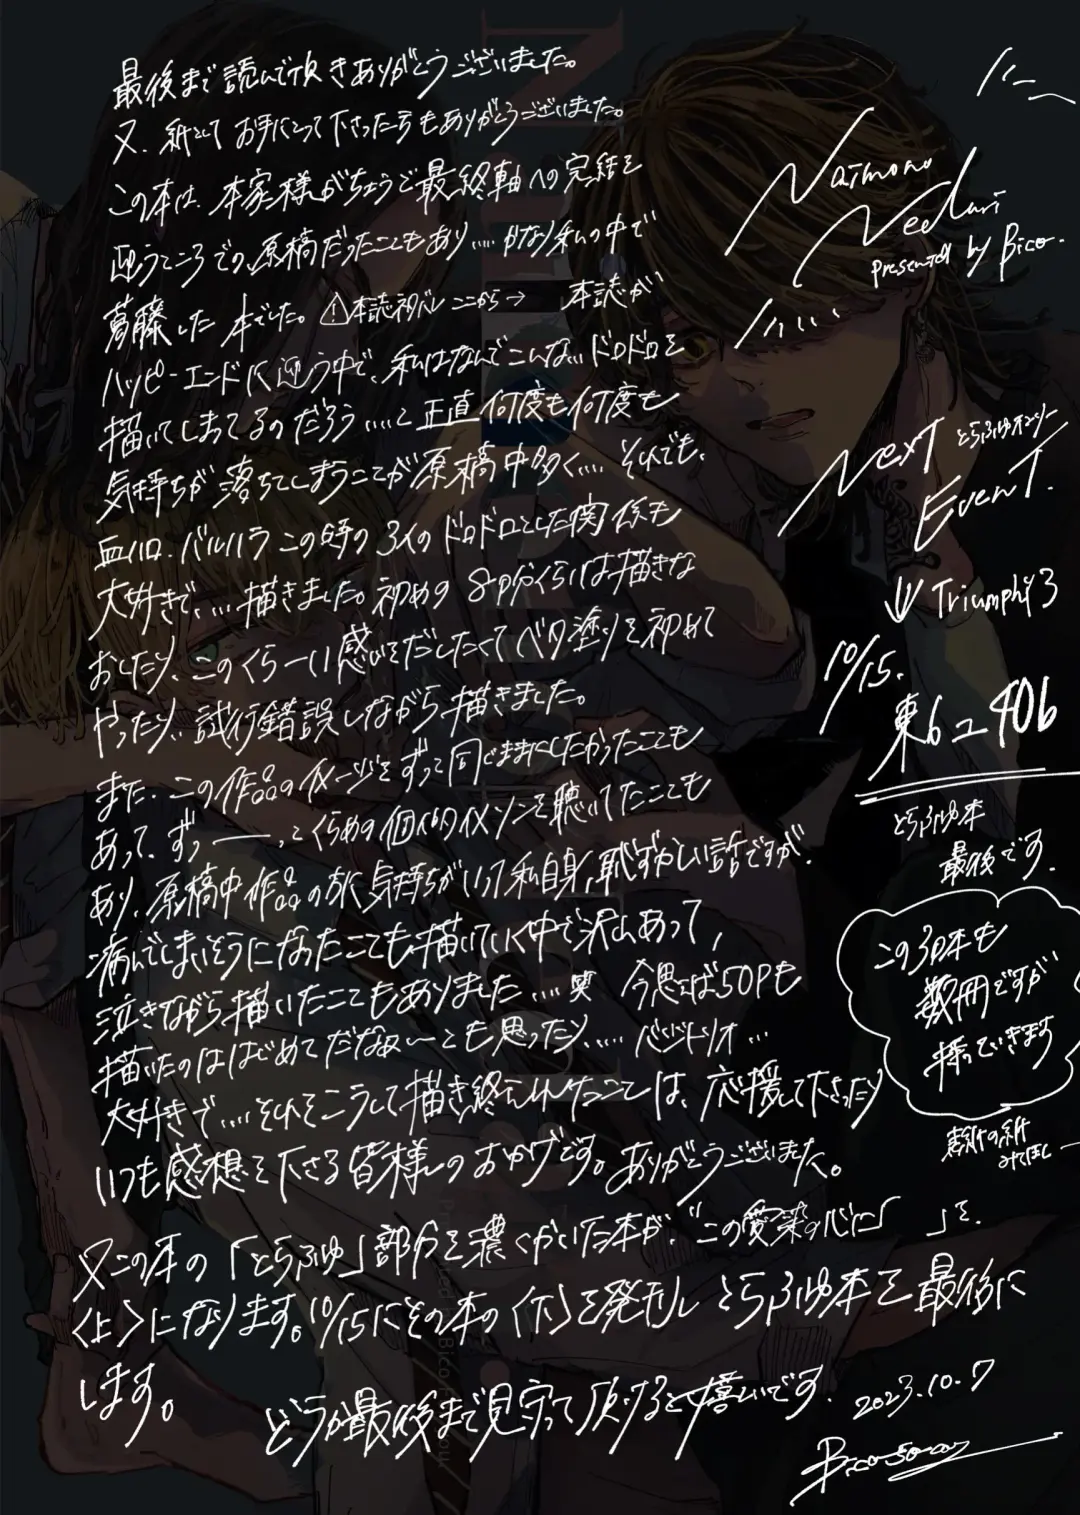 最後まで読んで頂きありがとうございました。
又、紙としてお手にとって下さった方もありがとうございました。
この本は、本家様がちょうど最終軸への完結を
迎うところでの、原稿だったこともあり.... かなり私の中で
葛藤した本でした。⚠本誌ネタバレここから→ 本誌が
ハッピーエンドに迎う中で、私はなんでこんな...ドロドロを
描いてしまってるのだろう....と正直何度も何度も
気持ちが落ちてしまうことが原稿中多く.... それでも、
血ハロ、バルハラこの時の3人のドロドロとした関係も
大好きで、...描きました。初めの8P分くらいは描きな
おしたり、このくらーい感じをだしたくてベタ塗りを初めて
やったり、試行錯誤しながら描きました。
また、この作品のイメージをずっと同じままにしたかったことも
あって、ずっ――っとくらめの個人的イメソンを聴いてたことも
あり、原稿中作品の方に気持ちがいって私自身、恥ずかしい話ですが、
病んでしまいそうになったことも描いていく中で沢山あって,
泣きながら描いたこともありました....笑 今思えば50Pも
描いたのははじめてだなぁ~とも思ったり、.... バジトリオ...
大好きで....それをこうして描き終えれたことは、応援して下さったり
いつも感想を下さる皆様のおかげです。ありがとうございました。
又この本の「とらふゆ」部分を濃くかいた本が、"この愛染の心に「　」を、
〈上〉になります。10/15にその本の〈下〉を発刊しとらふゆ本を最後に
します。
どうか最後まで見守って頂けると嬉しいです.
2023.10.7
Bico-so-ou
Naimono
Nedari
presented by Bico.
Next とらふゆオンリー
Event.
↓ Triumphゞ3
10/15.
東6ユ40b
とらふゆ本
最後です.
この3日本も
数冊ですが
持っていきます
表紙の紙
みてほし